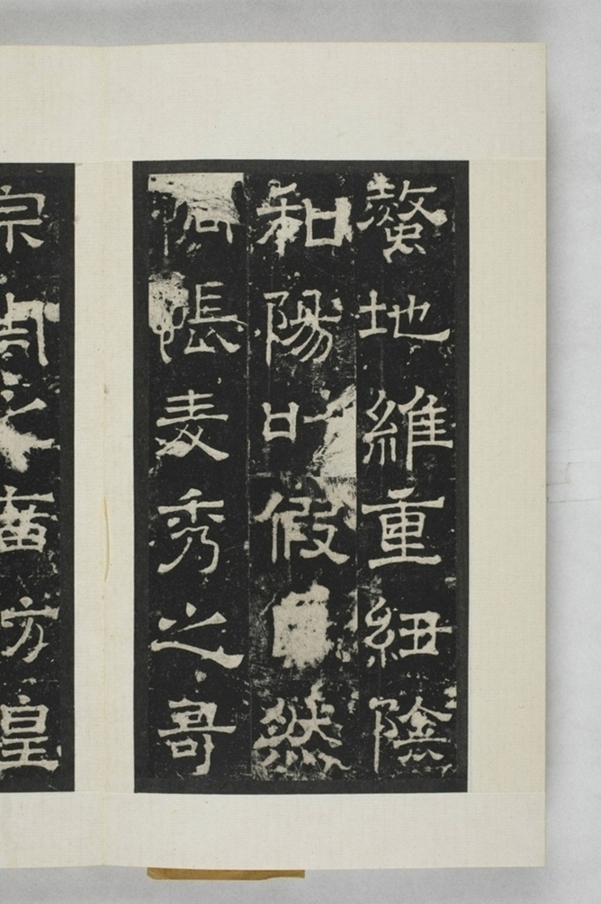 螯地維重紐陰
和陽叶假然
悵麦秀之哥
宗周之方皇